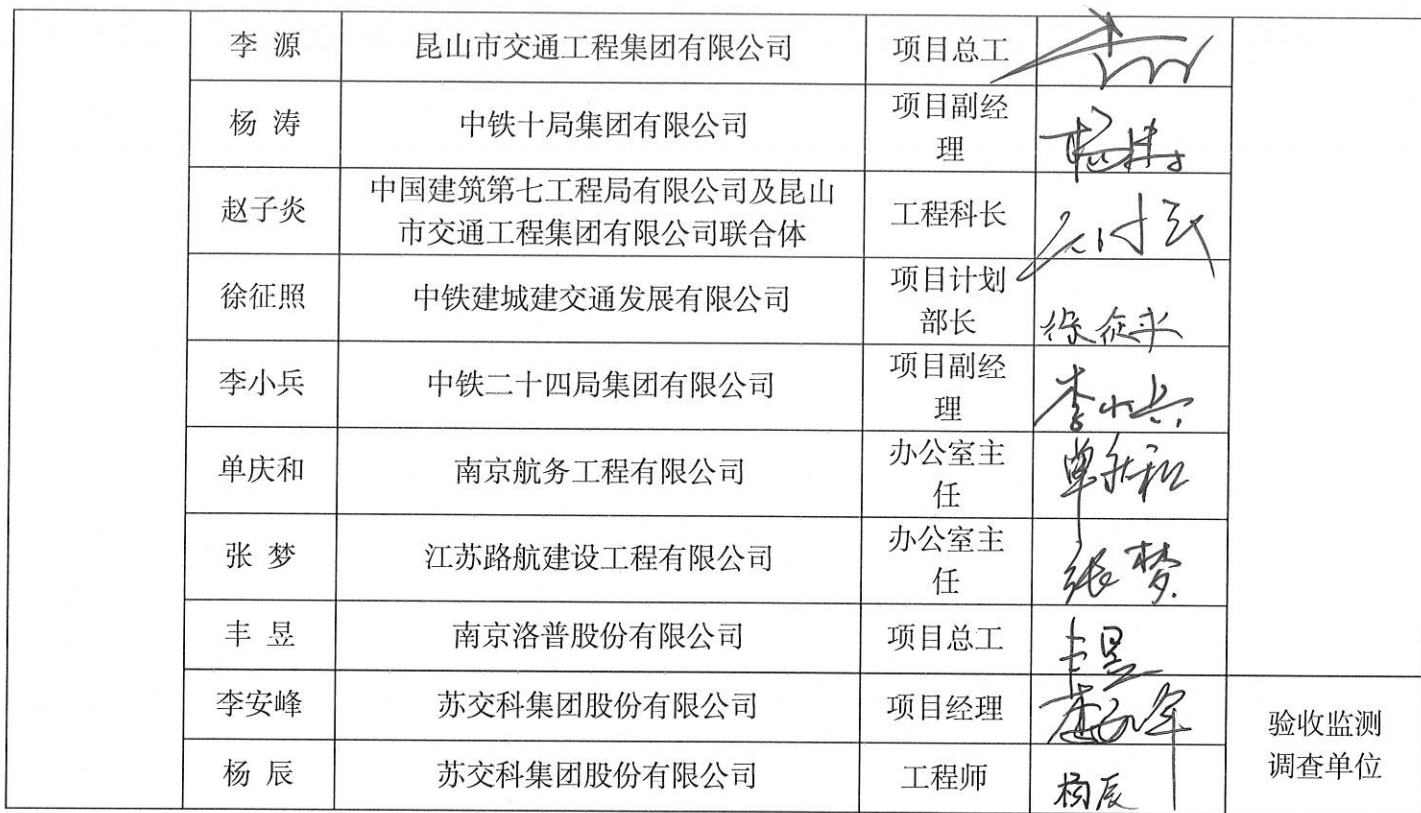 李 源 昆山市交通工程集团有限公司 项目总工
杨 涛 中铁十局集团有限公司 项目副经
理
赵子炎 中国建筑第七工程局有限公司及昆山
市交通工程集团有限公司联合体 工程科长
徐征照 中铁建城建交通发展有限公司 项目计划
部长
李小兵 中铁二十四局集团有限公司 项目副经
理 李小兵
单庆和 南京航务工程有限公司 办公室主
任 单庆和
张 梦 江苏路航建设工程有限公司 办公室主
任 张梦
丰 昱 南京洛普股份有限公司 项目总工 丰昱
李安峰 苏交科集团股份有限公司 项目经理
验收监测
调查单位
杨 辰 苏交科集团股份有限公司 工程师 杨辰